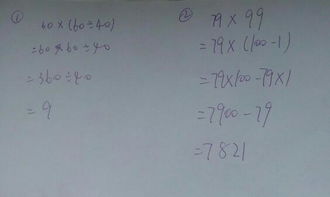 ①
60×(60÷40)
=60×60÷40
=360÷40
=9
②
79×99
=79×(100-1)
=79×100-79×1
=7900-79
=7821